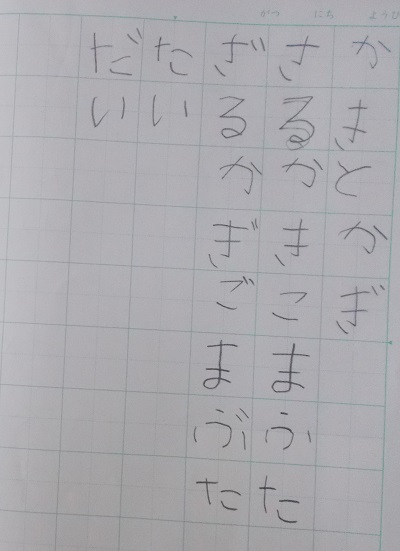 がつ にち ようび
かきとかぎ
さるかきこまふた
ざるかぎごまぶた
たい
だい